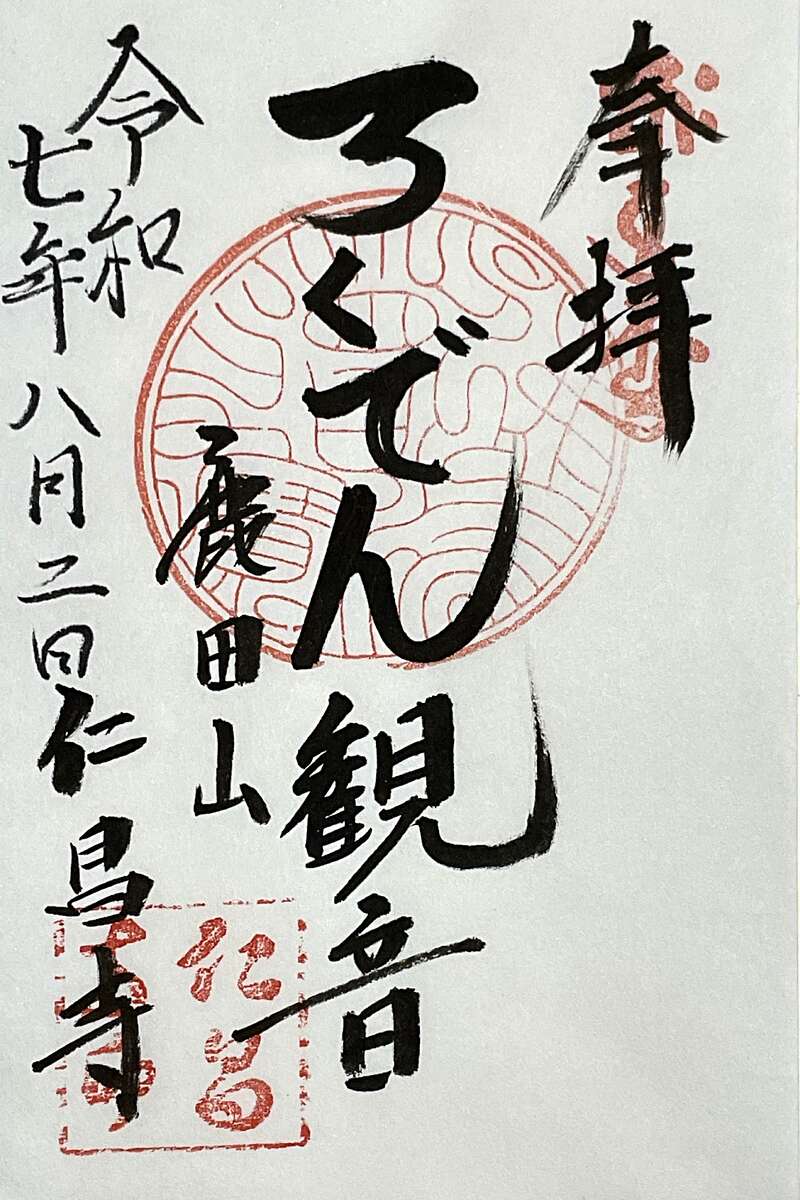 奉拝
ろくでん観音
鹿田山
令和
七年八月二日
仁昌寺
仁昌